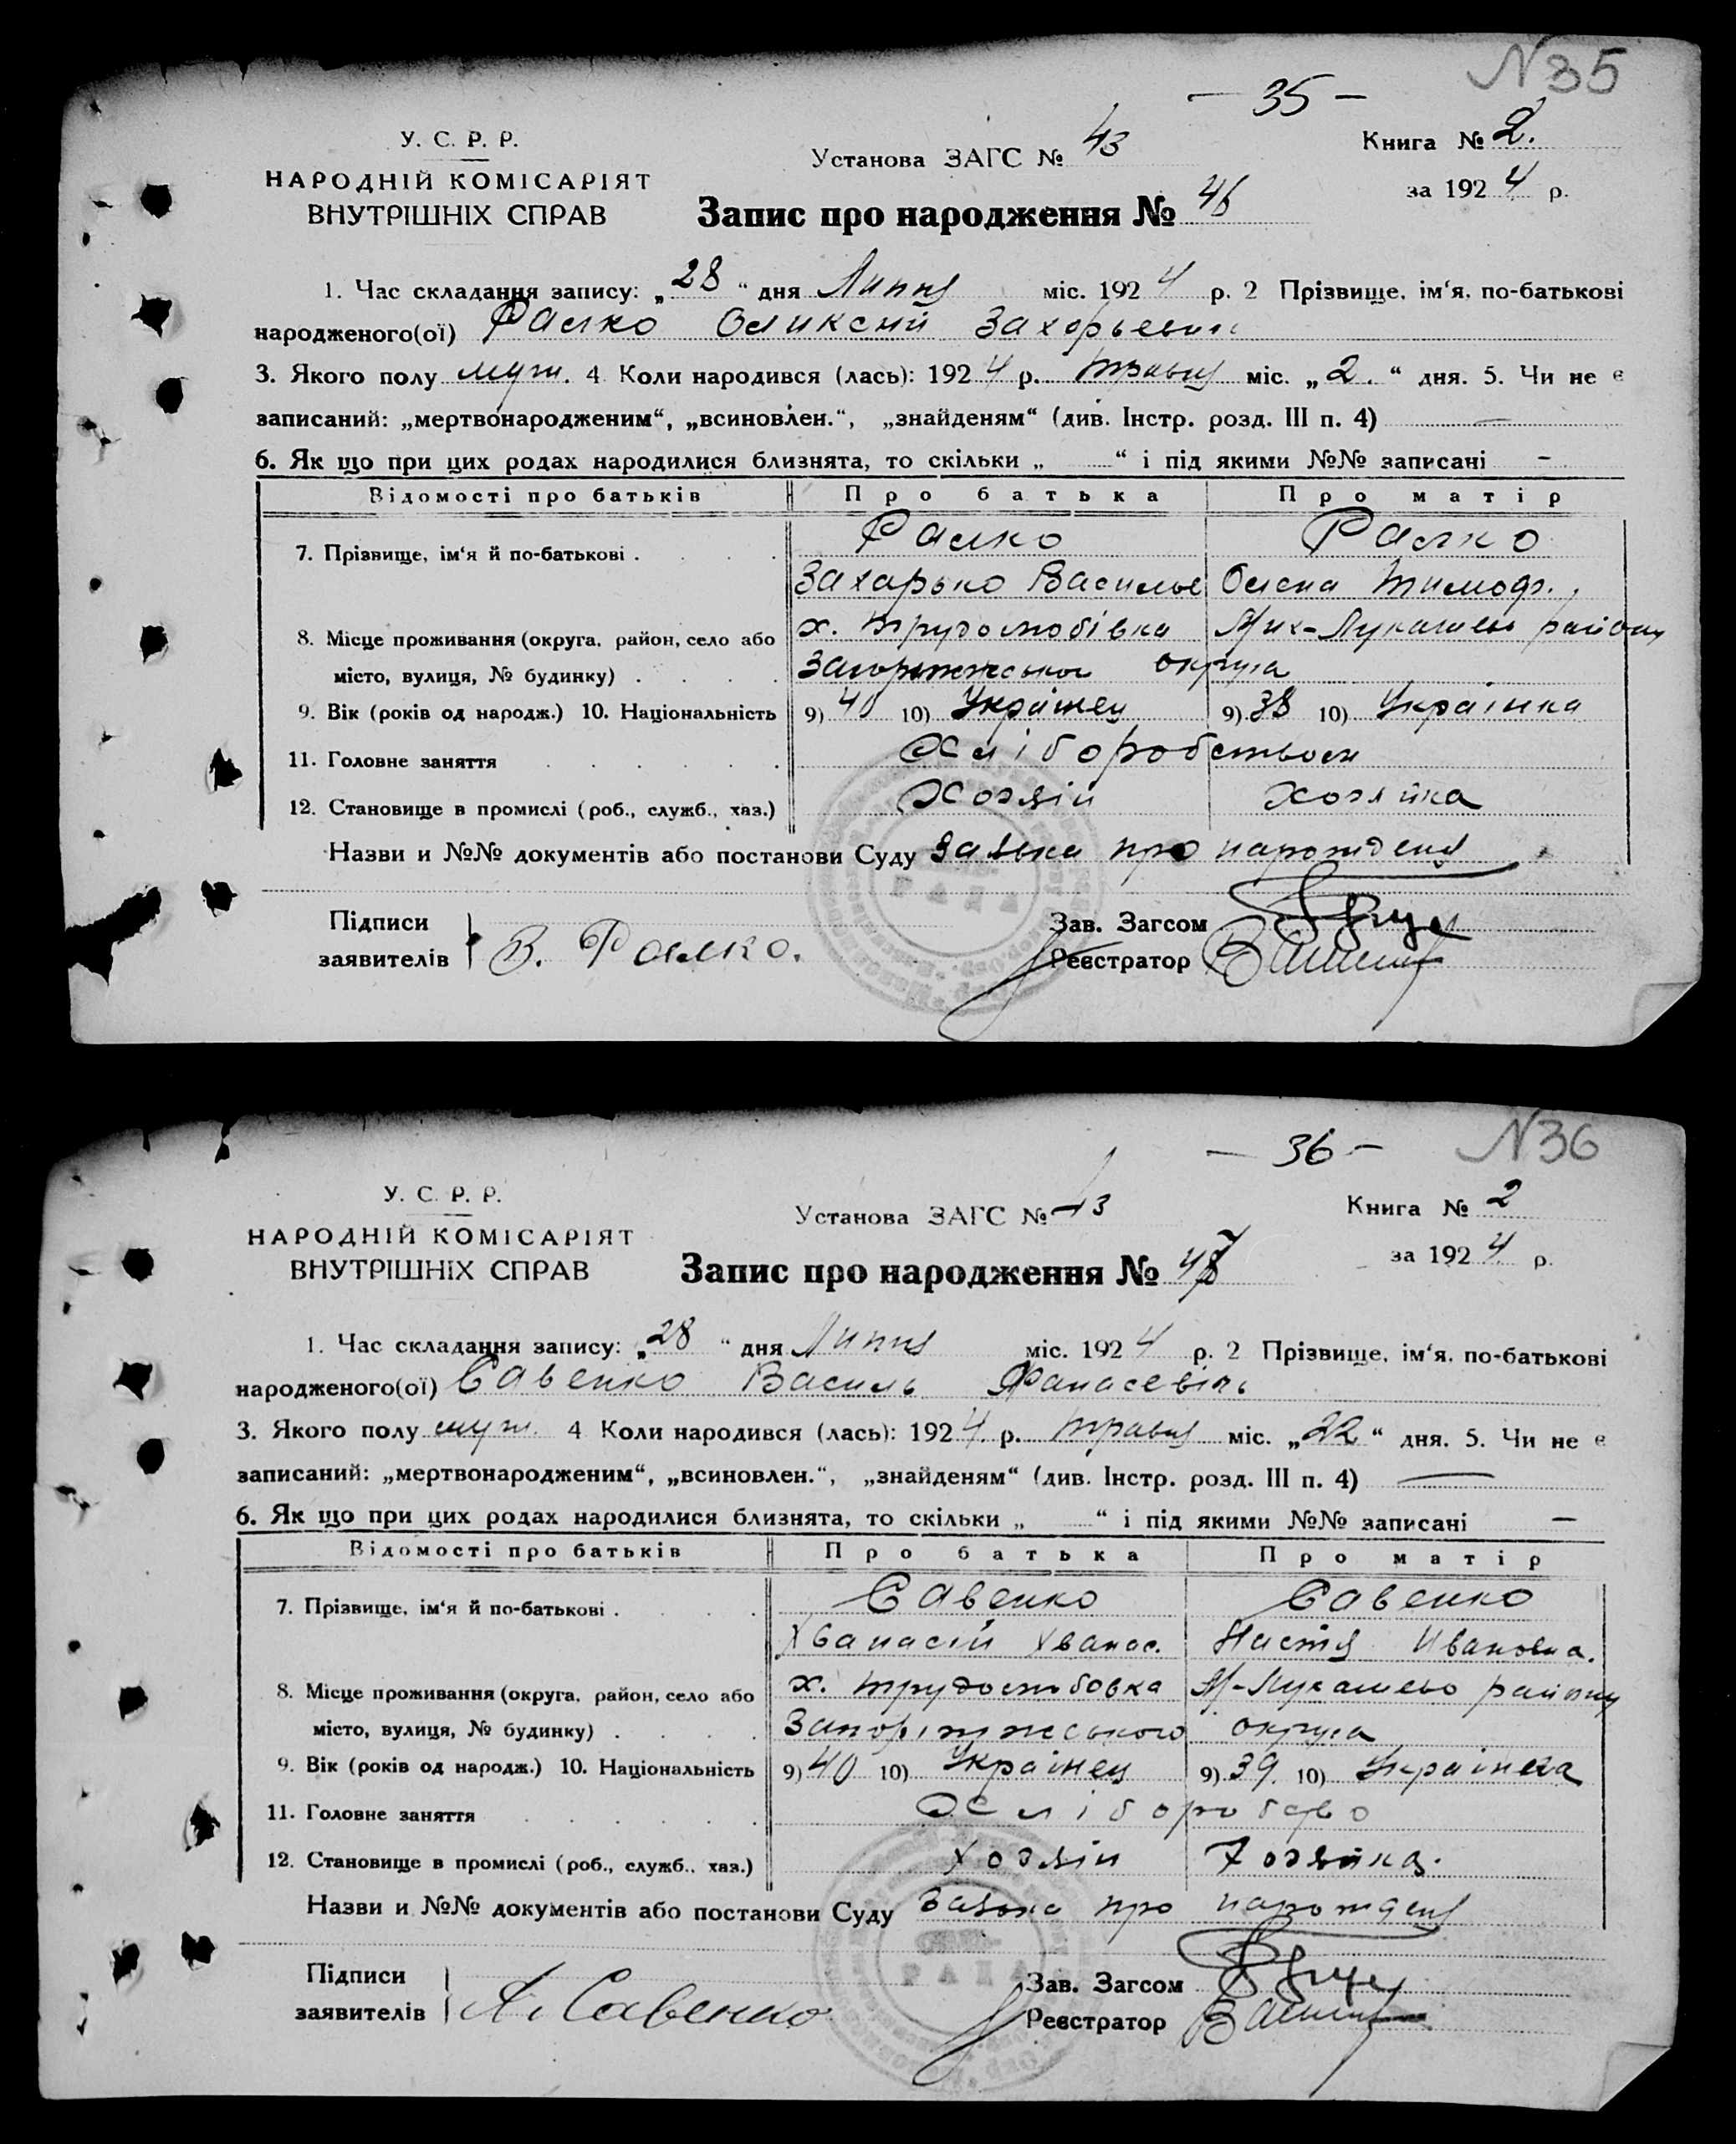 N 35
— 35 —
У. С. Р. Р.
НАРОДНІЙ КОМІСАРІЯТ
ВНУТРІШНІХ СПРАВ
Установа ЗАГС № 43
Книга № 2.
за 1924 р.
Запис про народження № 46
1. Час складання запису: „28“ дня Липня міс. 1924 р. 2 Прізвище, ім‘я, по-батькові
народженого(ої) Фалко Оликсий
3. Якого полу муж. 4 Коли народився (лась): 1924 р. травня міс. „2.“ дня. 5. Чи не є
записаний: „мертвонародженим“, „всиновлен.“, „знайденям“ (див. Інстр. розд. III п. 4) —
6. Як що при цих родах народилися близнята, то скільки „ “ і під якими №№ записані —
Відомості про батьків Про батька Про матір
7. Прізвище, ім‘я й по-батькові . Фалко Фалко
Захарько Василье Олена Тимоф.
8. Місце проживання (округа, район, село або х. Трудолюбівка Мих-Лукашево району
місто, вулиця, № будинку) . округа
9. Вік (років од народж.) 10. Національність 9) 40 10) Українец 9) 38 10) Українка
11. Головне заняття Хліборобством
12. Становище в промислі (роб., служб., хаз.) Хозяін Хозяйка
Назви и №№ документів або постанови Суду Заявка про нарождения
Підписи
заявителів В. Фалко.
Зав. Загсом
Реєстратор
N 36
— 36 —
У. С. Р. Р.
НАРОДНІЙ КОМІСАРІЯТ
ВНУТРІШНІХ СПРАВ
Установа ЗАГС №
Книга № 2
за 1924 р.
Запис про народження № 47
1. Час складання запису: „28“ дня Липня міс. 1924 р. 2 Прізвище, ім‘я, по-батькові
народженого(ої) Савенко Василь
3. Якого полу муж. 4 Коли народився (лась): 1924 р. травня міс. „22“ дня. 5. Чи не є
записаний: „мертвонародженим“, „всиновлен.“, „знайденям“ (див. Інстр. розд. III п. 4) —
6. Як що при цих родах народилися близнята, то скільки „ “ і під якими №№ записані —
Відомості про батьків Про батька Про матір
7. Прізвище, ім‘я й по-батькові . Савенко Савенко
Хванасій Хванас. Настя Ивановна.
8. Місце проживання (округа, район, село або х. Трудолюбовка М-Лукашево району
місто, вулиця, № будинку) . Запоріжжського округа
9. Вік (років од народж.) 10. Національність 9) 40 10) Українец 9) 39. 10) Українка
11. Головне заняття
12. Становище в промислі (роб., служб., хаз.) Хозяін Хозяйка.
Назви и №№ документів або постанови Суду Заявка про нарождения
Підписи
заявителів А. Савенко
Зав. Загсом
Реєстратор